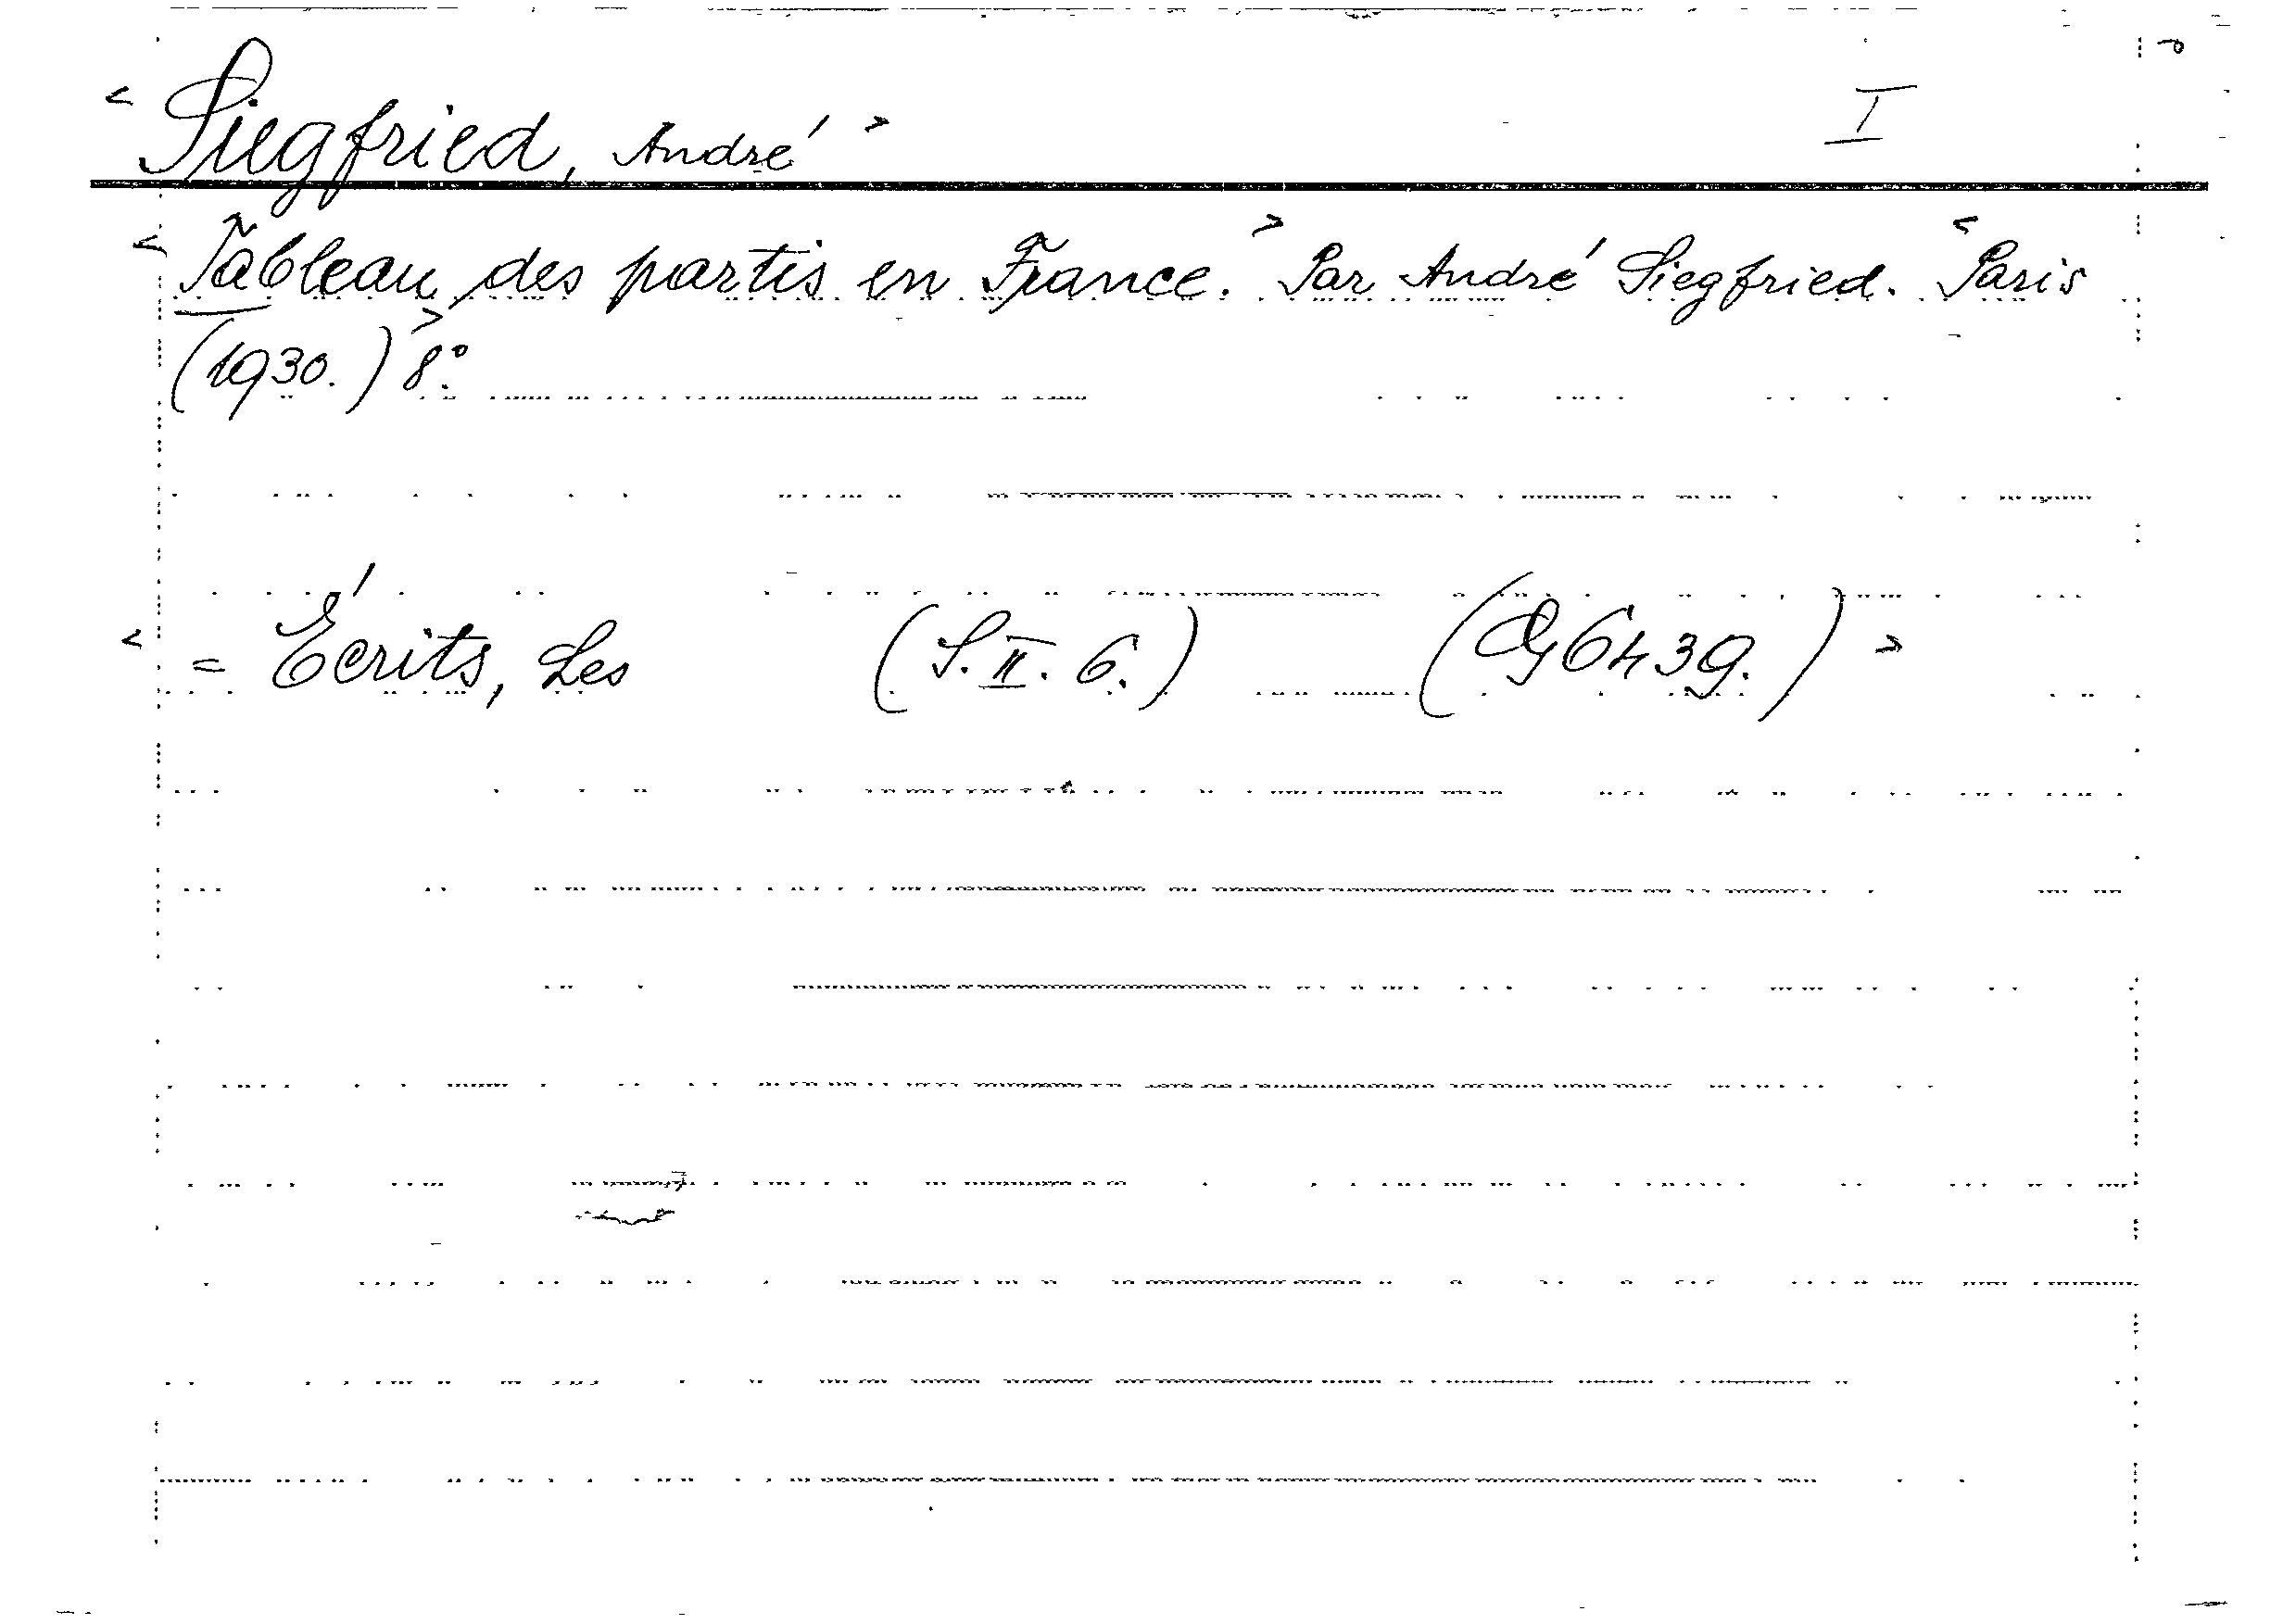 < Siegfried, André > I
< Tableau des partis en France. > Par André Siegfried. < Paris
(1930.) > 8°.
< = Écrits, Les (S. II. 6.) (G 6439.) >